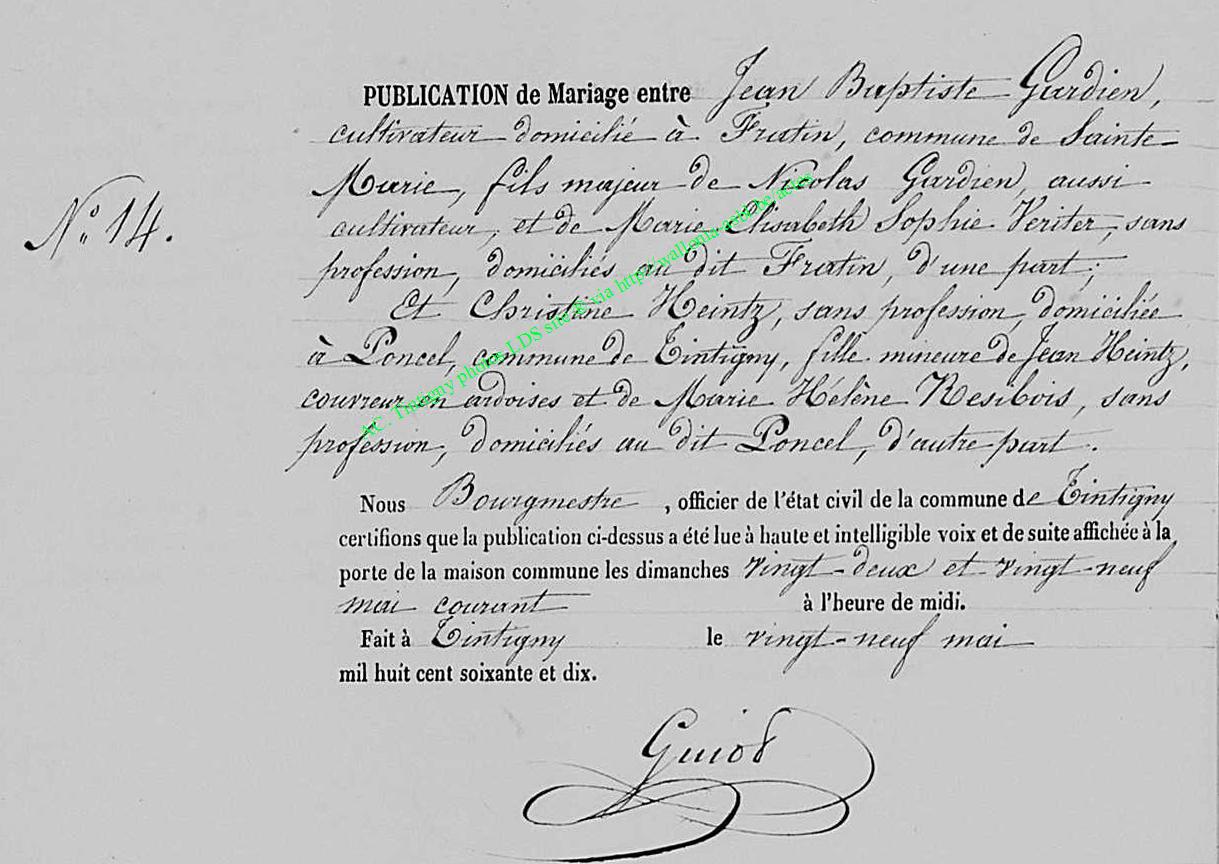 PUBLICATION de Mariage entre Jean Baptiste Gardien,
cultivateur domicilié à Fratin, commune de Sainte
Marie, fils majeur de Nicolas Gardien, aussi
N° 14.
cultivateur, et de Marie Elisabeth Sophie Veriter, sans
profession, domiciliés au dit Fratin, d'une part;
Et Christine Heintz, sans profession, domiciliée
à Poncel, commune de Tintigny, fille mineure de Jean Heintz,
couvreur en ardoises et de Marie Hélène Resibois, sans
profession, domiciliés au dit Poncel, d'autre part.
AC. Tintigny photos LDS site © via
Nous Bourgmestre, officier de l'état civil de la commune de Tintigny
certifions que la publication ci-dessus a été lue à haute et intelligible voix et de suite affichée à la
porte de la maison commune les dimanches vingt-deux et vingt-neuf
mai courant à l'heure de midi.
Fait à Tintigny le vingt-neuf mai
mil huit cent soixante et dix.